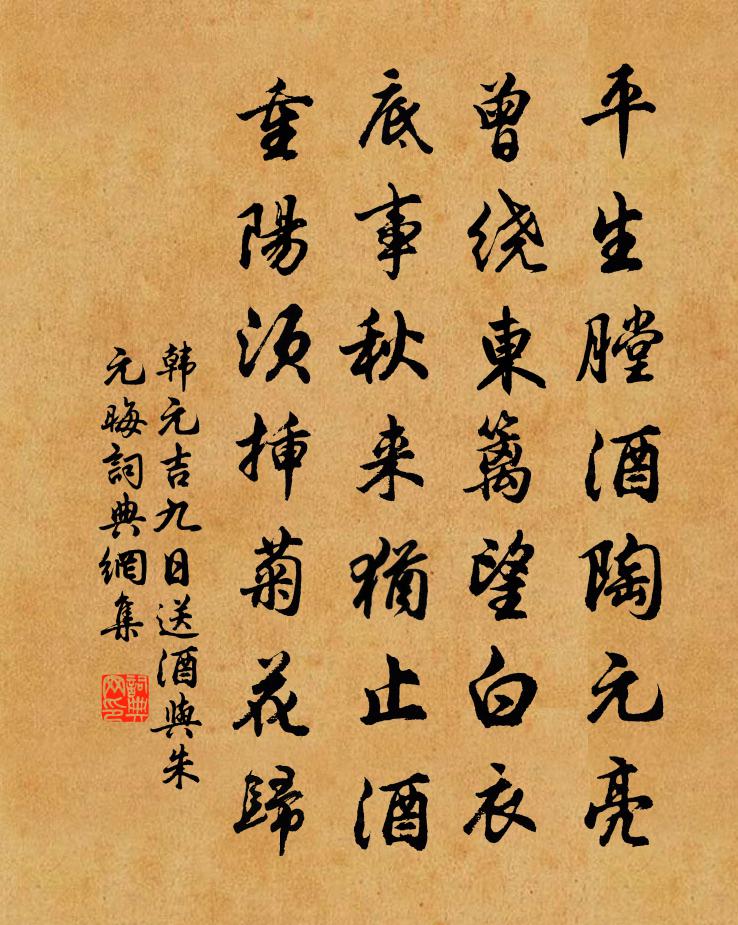 平生膛酒陶元亮
曾绕東籬望白衣
底事秋来猶止酒
重陽须插菊花歸
韩元吉九日送酒與朱
元晦詞典網集
詞典
网印